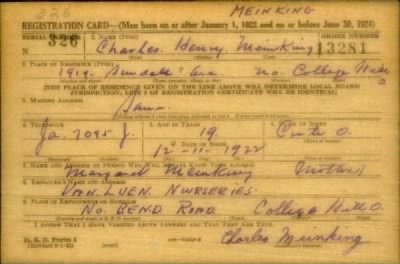 326
MEINKING
REGISTRATION CARD—(Men born on or after January 1, 1922 and on or before June 30, 1924)
SERIAL NUMBER 1. NAME (Print) ORDER NUMBER
326 Charles Henry Meinking 13281
2. PLACE OF RESIDENCE (Print)
1919 Ave. No. College Hill O
[THE PLACE OF RESIDENCE GIVEN ON THE LINE ABOVE WILL DETERMINE LOCAL BOARD
JURISDICTION; LINE 2 OF REGISTRATION CERTIFICATE WILL BE IDENTICAL]
3. MAILING ADDRESS
Same
4. TELEPHONE 5. AGE IN YEARS 6. PLACE OF BIRTH
Ja. 7095 J. 19 O.
DATE OF BIRTH
12-11-1922
7. NAME AND ADDRESS OF PERSON WHO WILL ALWAYS KNOW YOUR ADDRESS
Margaret Meinking (Mother)
8. EMPLOYER'S NAME AND ADDRESS
VAN LUEN NURSERIES.
9. PLACE OF EMPLOYMENT OR BUSINESS
No. BEND ROAD College Hill O.
I AFFIRM THAT I HAVE VERIFIED ABOVE ANSWERS AND THAT THEY ARE TRUE.
D. S. S. Form 1
Charles Meinking